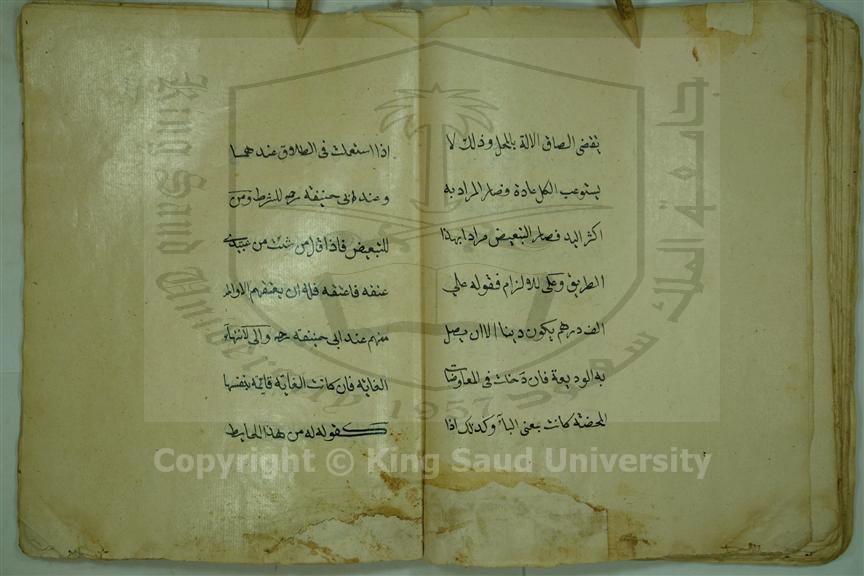 تقتضى الصاق الالة بالمحل وذلك لا
يستوعب الكل عادة وصار المراد به
اكثر اليد فصار التبعيض مرادا بهذا
الطريق وعلى للالزام فقوله علي
الف درهم يكون دينا الا ان يصل
به الوديعة فان دخلت فى المعاوضات
المحضة كانت بمعنى البآ وكذلك اذا
اذا استعملت فى الطلاق عندهما
وعند ابى حنيفة رحمه للشرط ومن
للتبعيض فاذا قال من شئت من عبيدى
عتقه فاعتقه فله ان يعتقهم الا واحدا
منهم عند ابى حنيفة رحمه والى لانتهآء
الغاية فان كانت الغاية قائمة بنفسها
كقوله له من هذا الحايط
جامعة الملك سعود
King Saud University
1957
Copyright © King Saud University